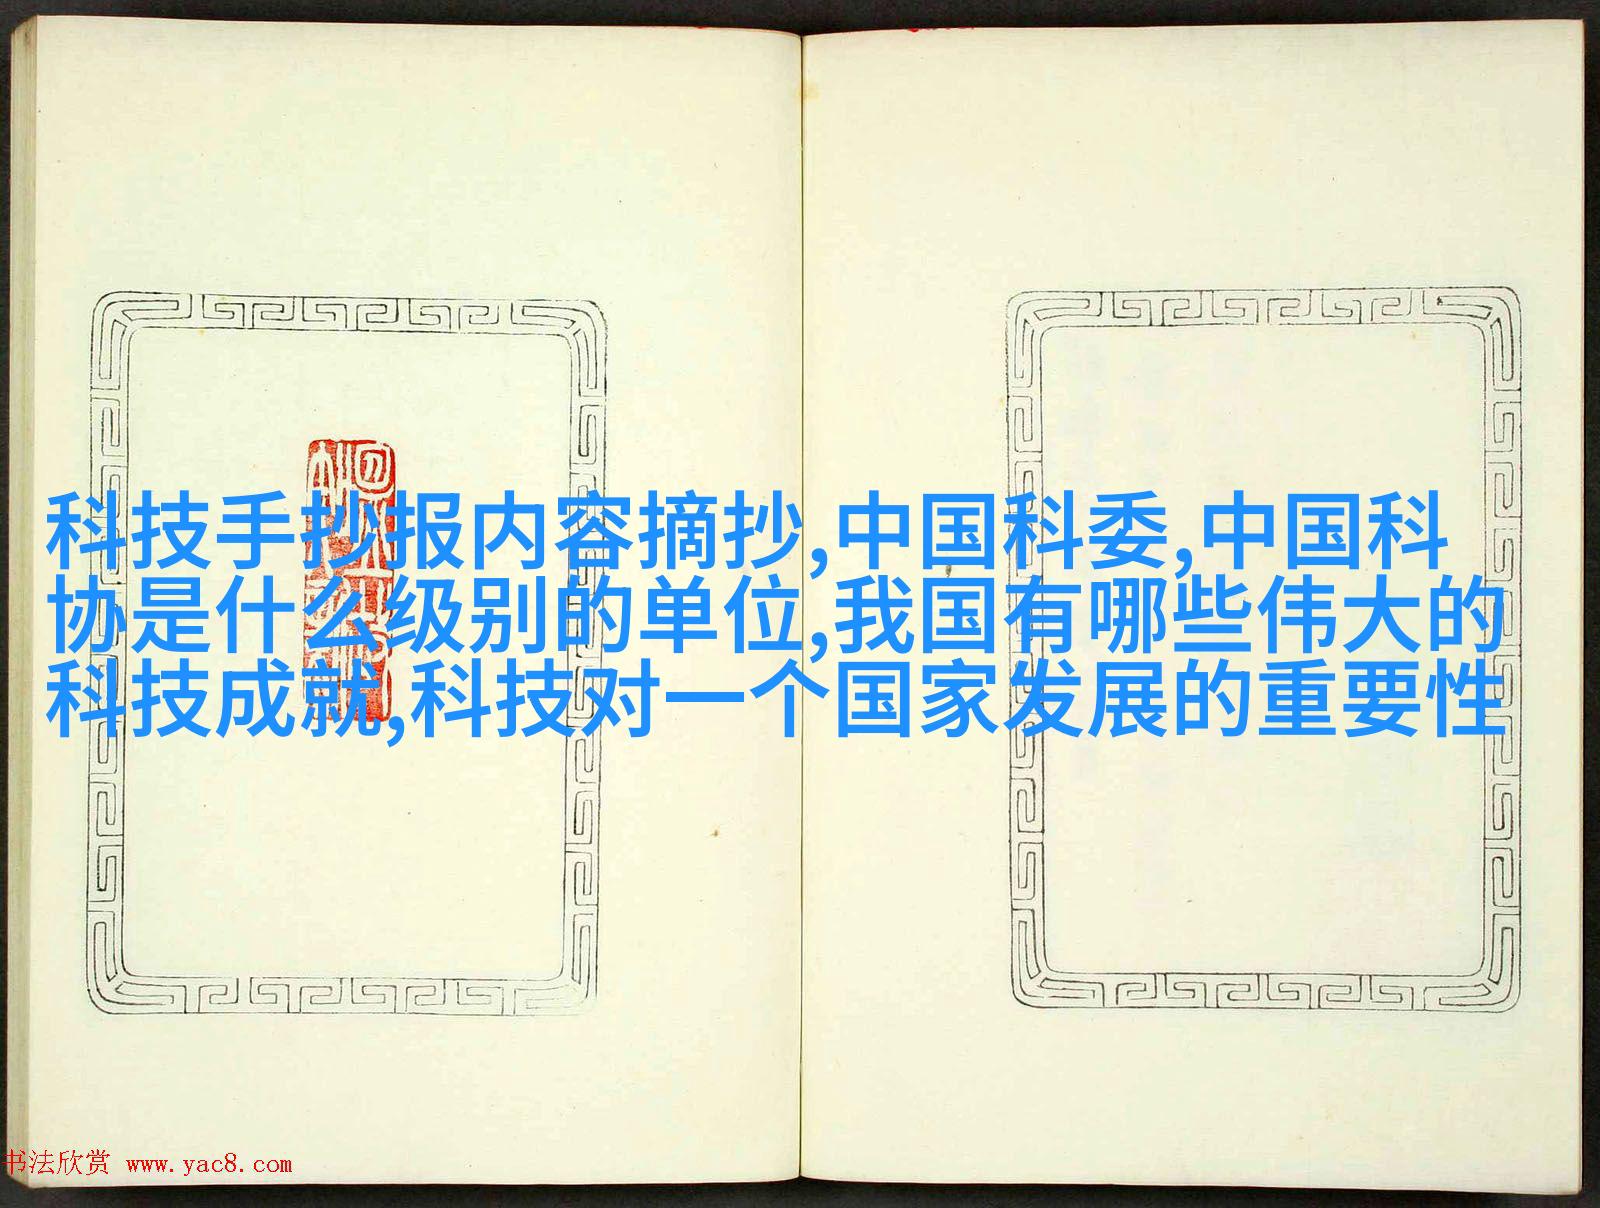 科技手抄报内容摘抄,中国科委,中国科
协是什么级别的单位,我国有哪些伟大的
科技成就,科技对一个国家发展的重要性
书法欣赏 www.yac8.com